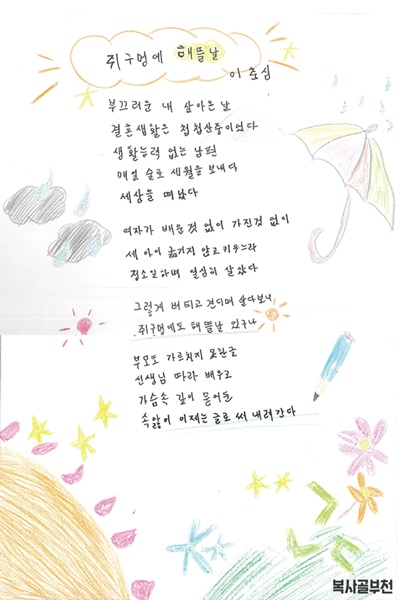 쥐구멍에 해뜰날
이춘심
부끄러운 내 살아온 날
결혼생활은 첩첩산중이었다
생활능력 없는 남편
매일 술로 세월을 보내다
세상을 떠났다
여자가 배운것 없이 가진것 없이
세 아이 굶기지 안고 키우느라
청소일하며 열심히 살았다
그렇게 버티고 견디며 살다보니
쥐구멍에도 해뜰날 있구나
부모도 가르치지 못한글
선생님 따라 배우고
가슴속 깊이 묻어둔
속앓이 이제는 글로 써 내려간다
복사골부천